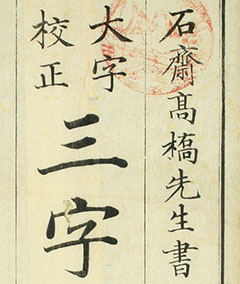 石齋髙橋先生書
大字
校正
三字